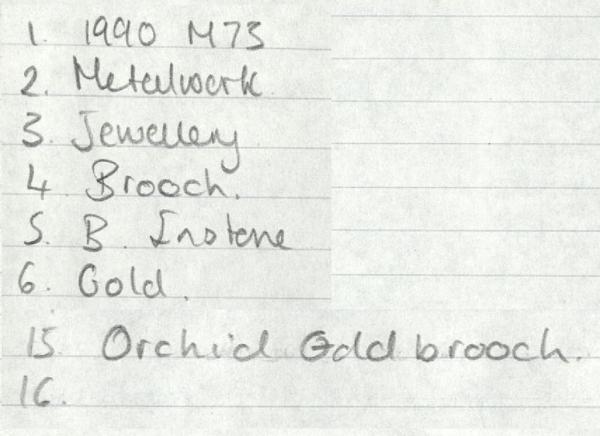 1. 1990 M73
2. Metalwork
3. Jewellery
4 Brooch.
5. B. Instone
6. Gold.
15 Orchid Gold brooch.
16.